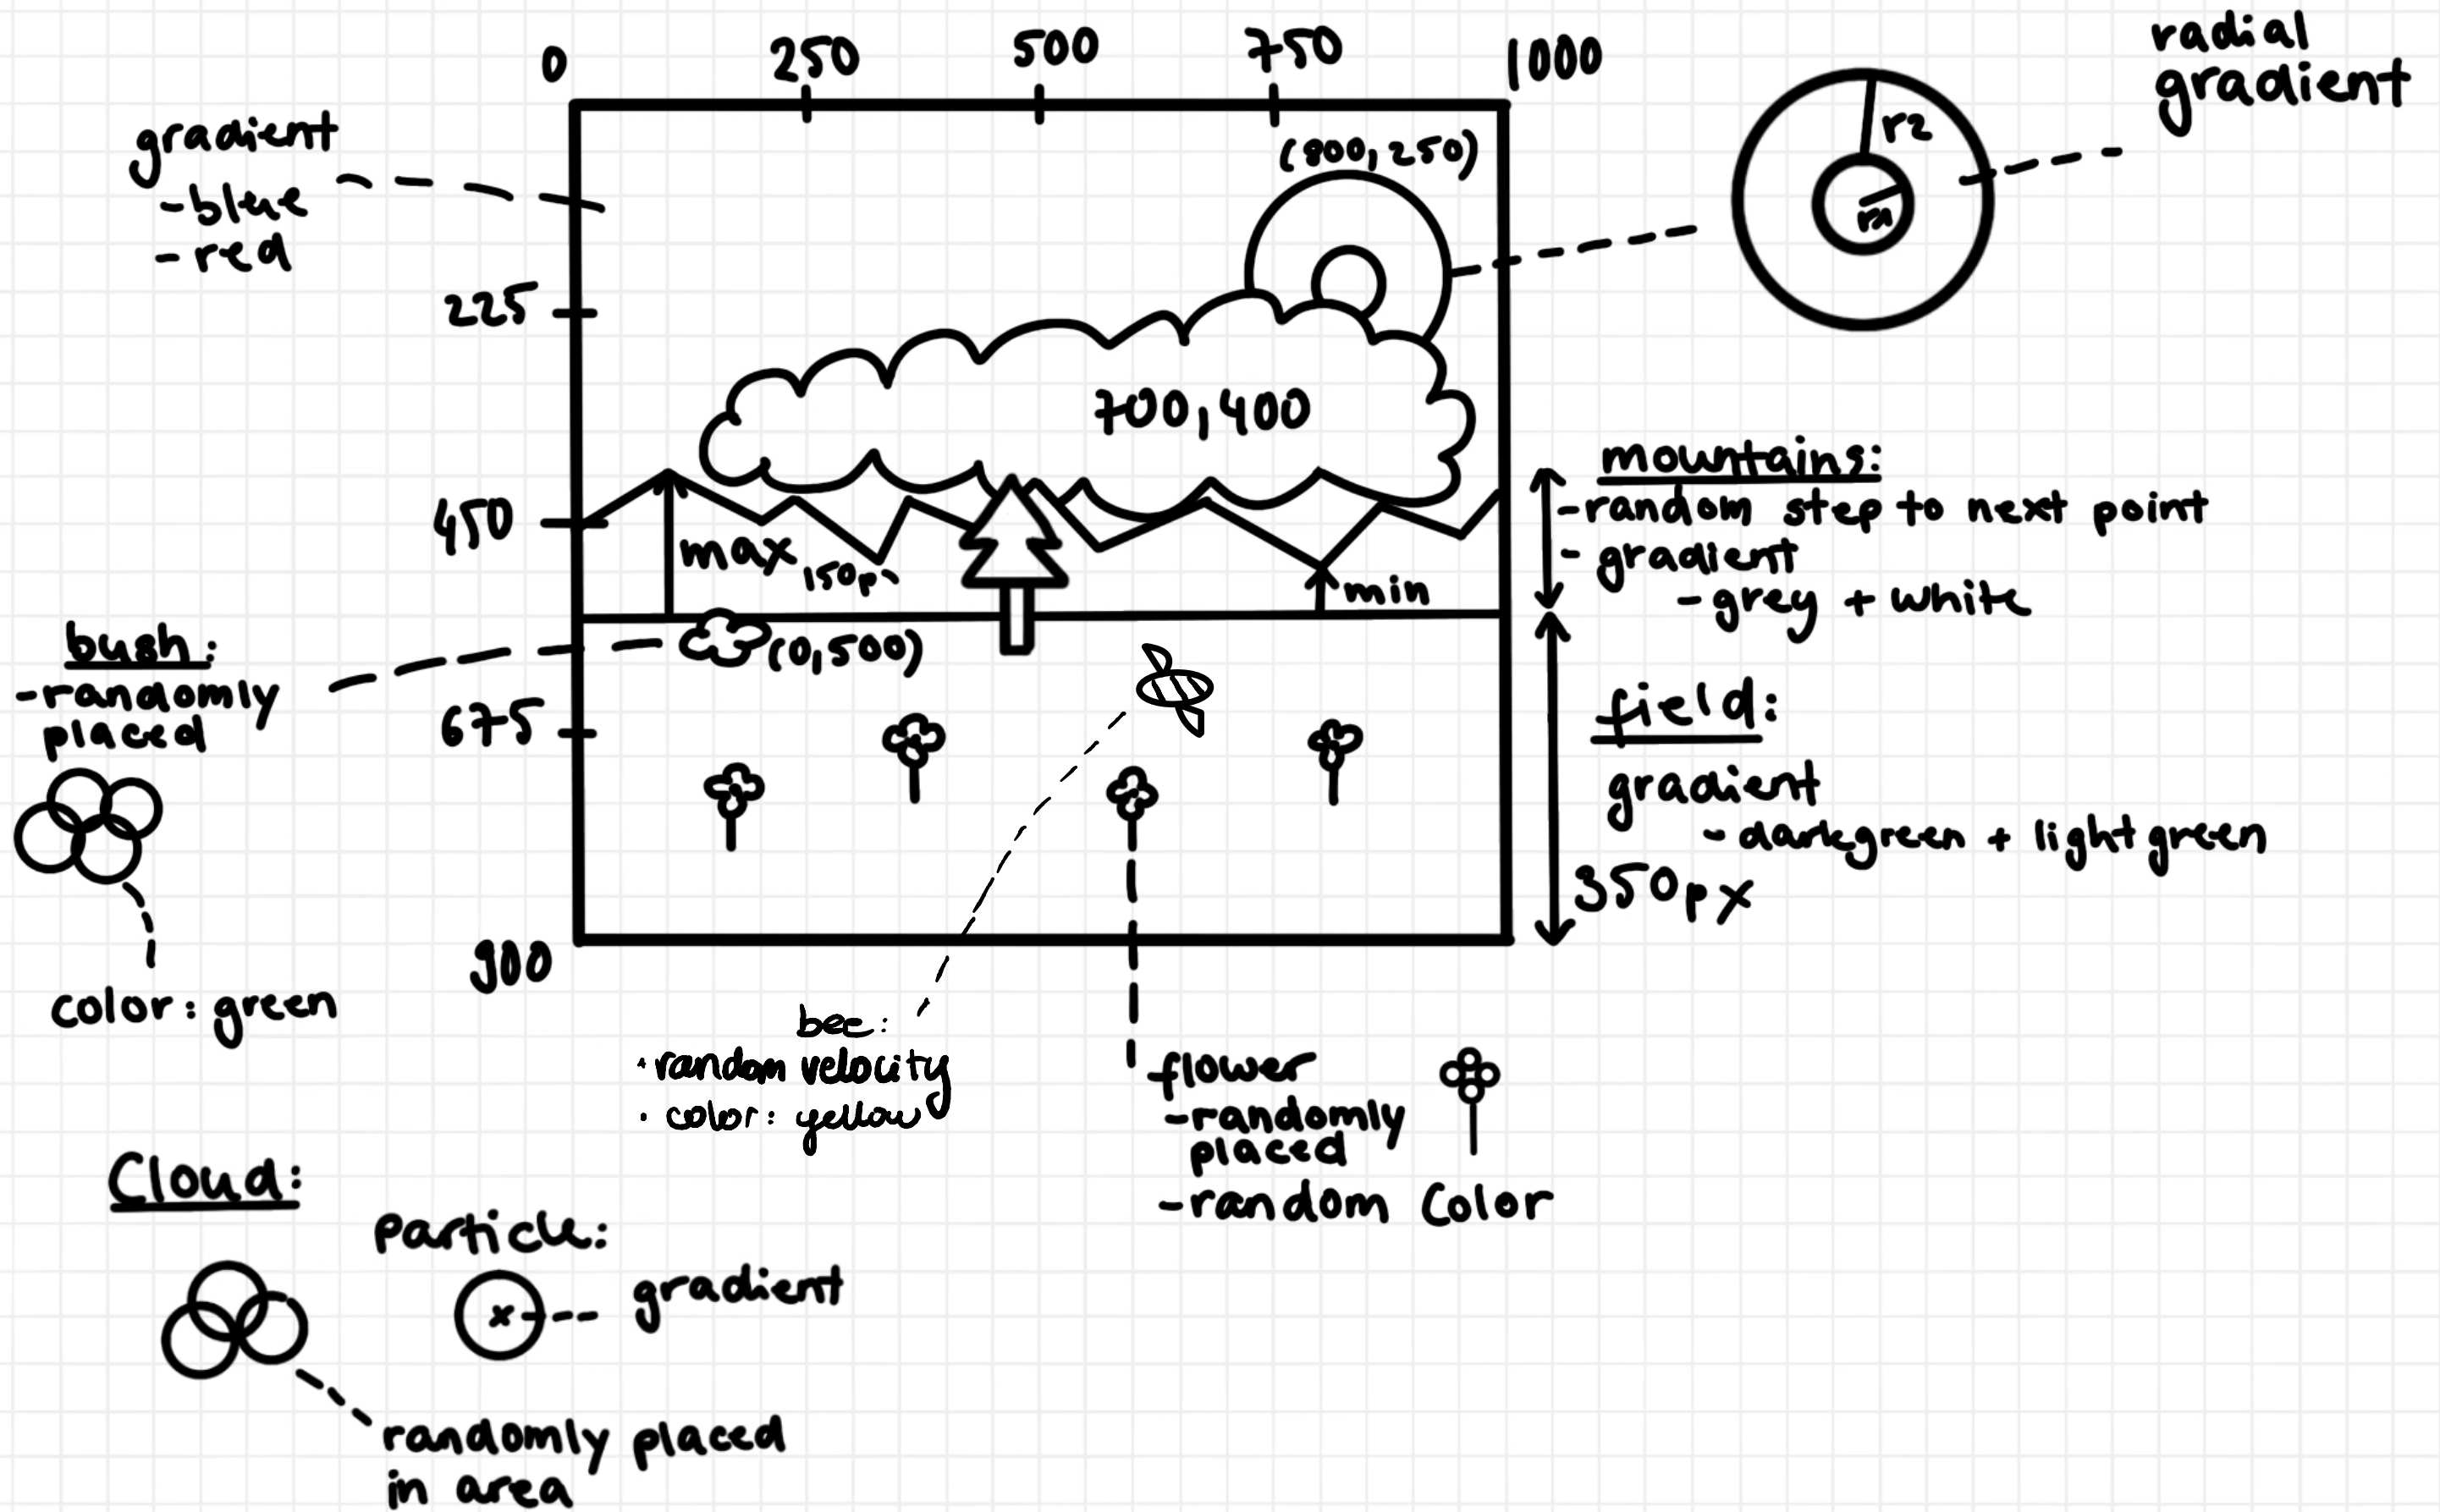 0
250
500
750
1000
radial
gradient
gradient
-blue
-red
r2
r1
(800,250)
225
700,400
450
max 150px
min
mountains:
-random step to next point
- gradient
- grey + white
bush:
-randomly
placed
(0,500)
675
field:
gradient
- darkgreen + lightgreen
350px
900
color: green
bee:
· random velocity
· color: yellow
flower
-randomly
placed
-random Color
Cloud:
Particle:
x
gradient
randomly placed
in area